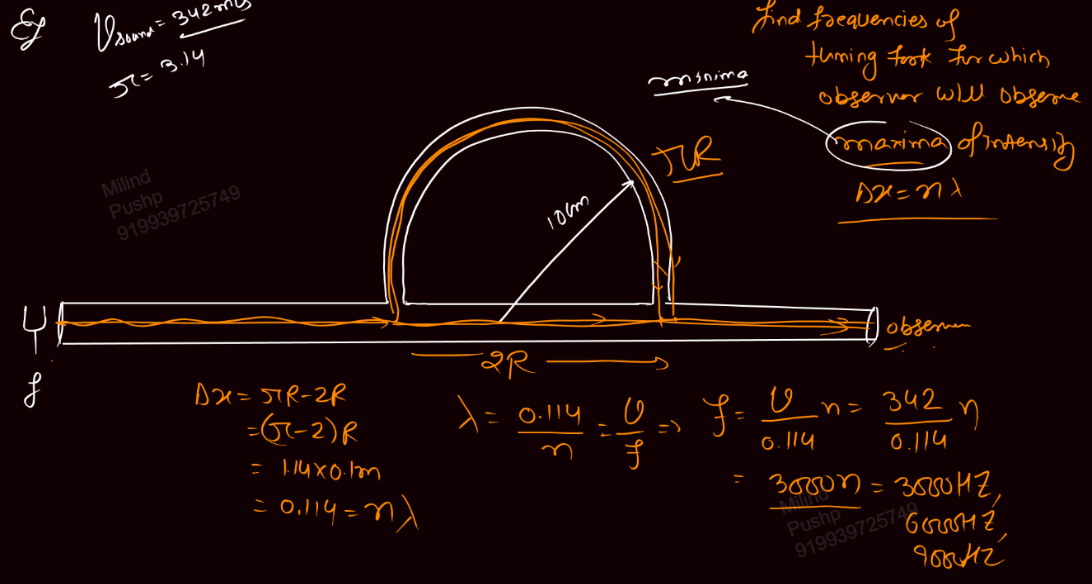 Eg
V_sound = 342 m/s
π = 3.14
find frequencies of
tuning fork for which
observer will observe
maxima of intensity
Δx = nλ
minima
πR
10cm
Milind
Pushp
919939725749
observer
2R
f
Δx = πR - 2R
= (π-2)R
= 1.14 × 0.1m
= 0.114 = nλ
λ = 0.114/n = v/f ⇒ f = v/0.114 n = 342/0.114 n
= 3000n = 3000HZ,
6000HZ,
9000HZ
Milind
Pushp
919939725749